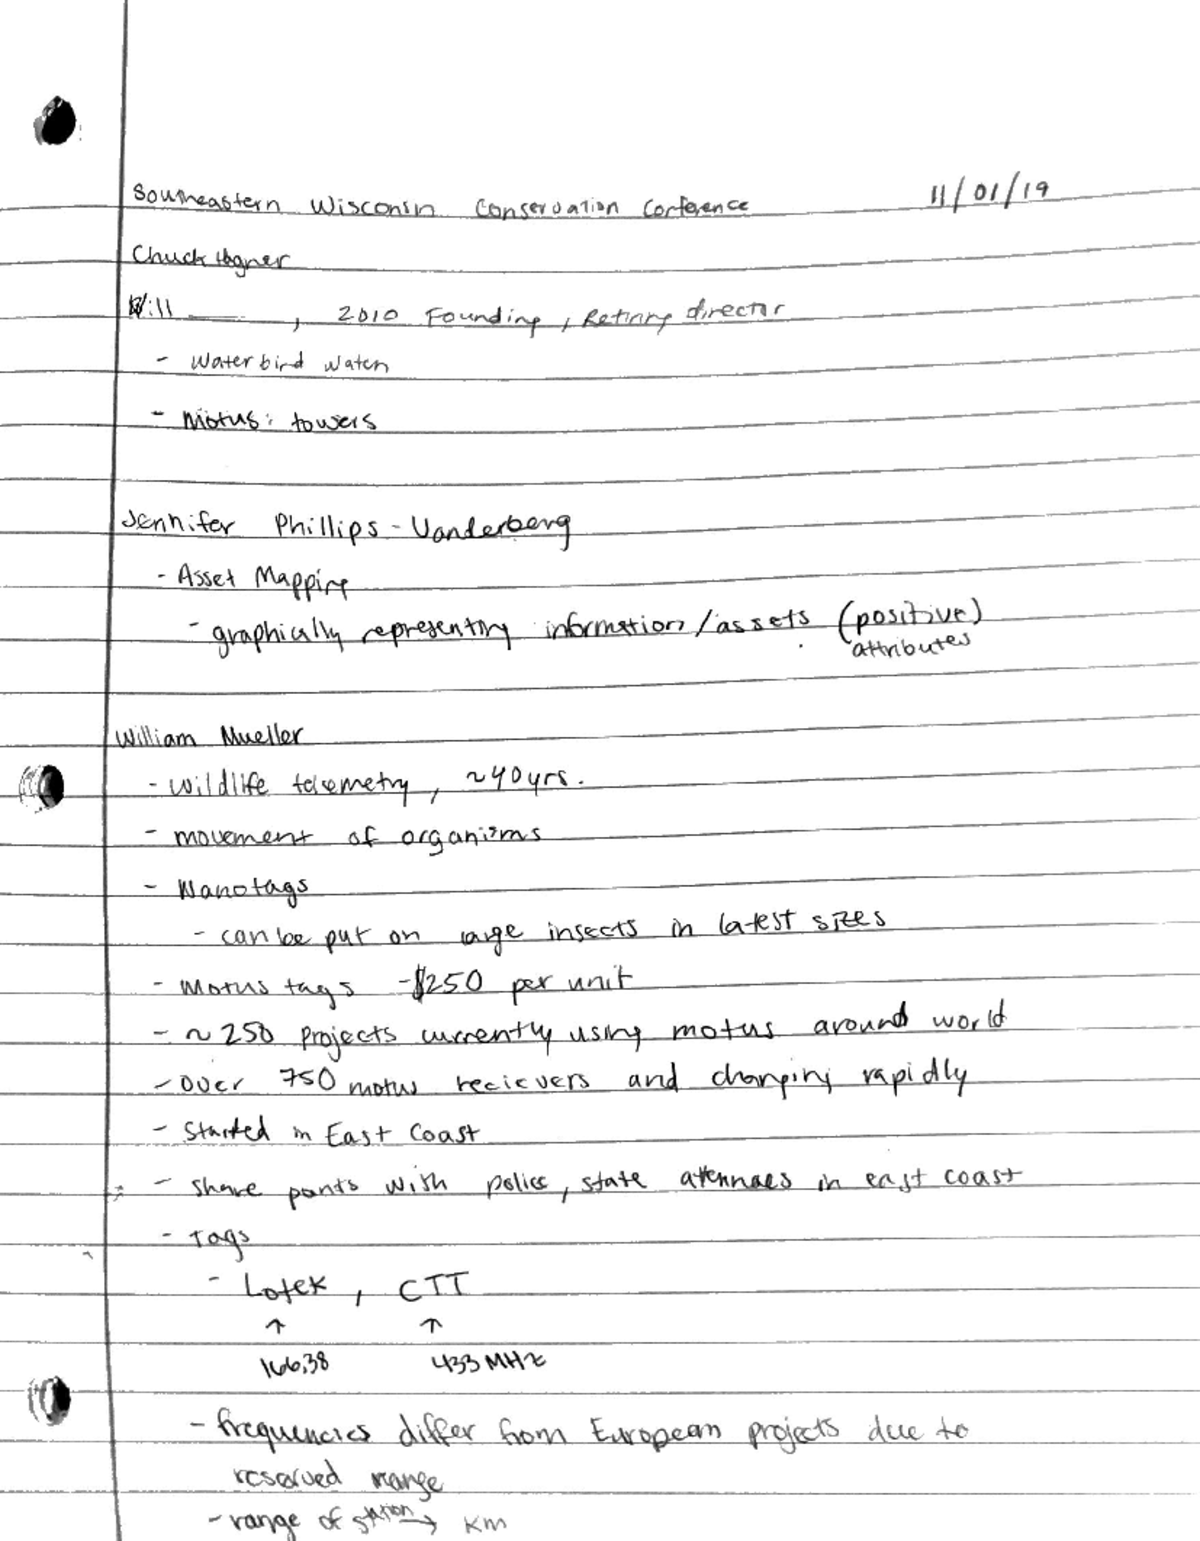 Southeastern Wisconsin Conservation Conference 11/01/19
Chuck Hagner
Will ______, 2010 Founding, Retiring director
- Waterbird Watch
- Motus: towers
Jennifer Phillips-Vanderberg
- Asset Mapping
- graphically representing information/assets (positive)
attributes
William Mueller
- wildlife telemetry, ~40yrs.
- movement of organisms
- Nanotags
- can be put on large insects in latest sizes
- Motus tags -$250 per unit
- ~250 projects currently using motus around world
- over 750 motus recievers and changing rapidly
- Started in East Coast
- share points with police, state antennaes in east coast
- Tags
- Lotek, CTT
↑ ↑
166.38 433 MHz
- frequencies differ from European projects due to
reserved range
- range of station → km